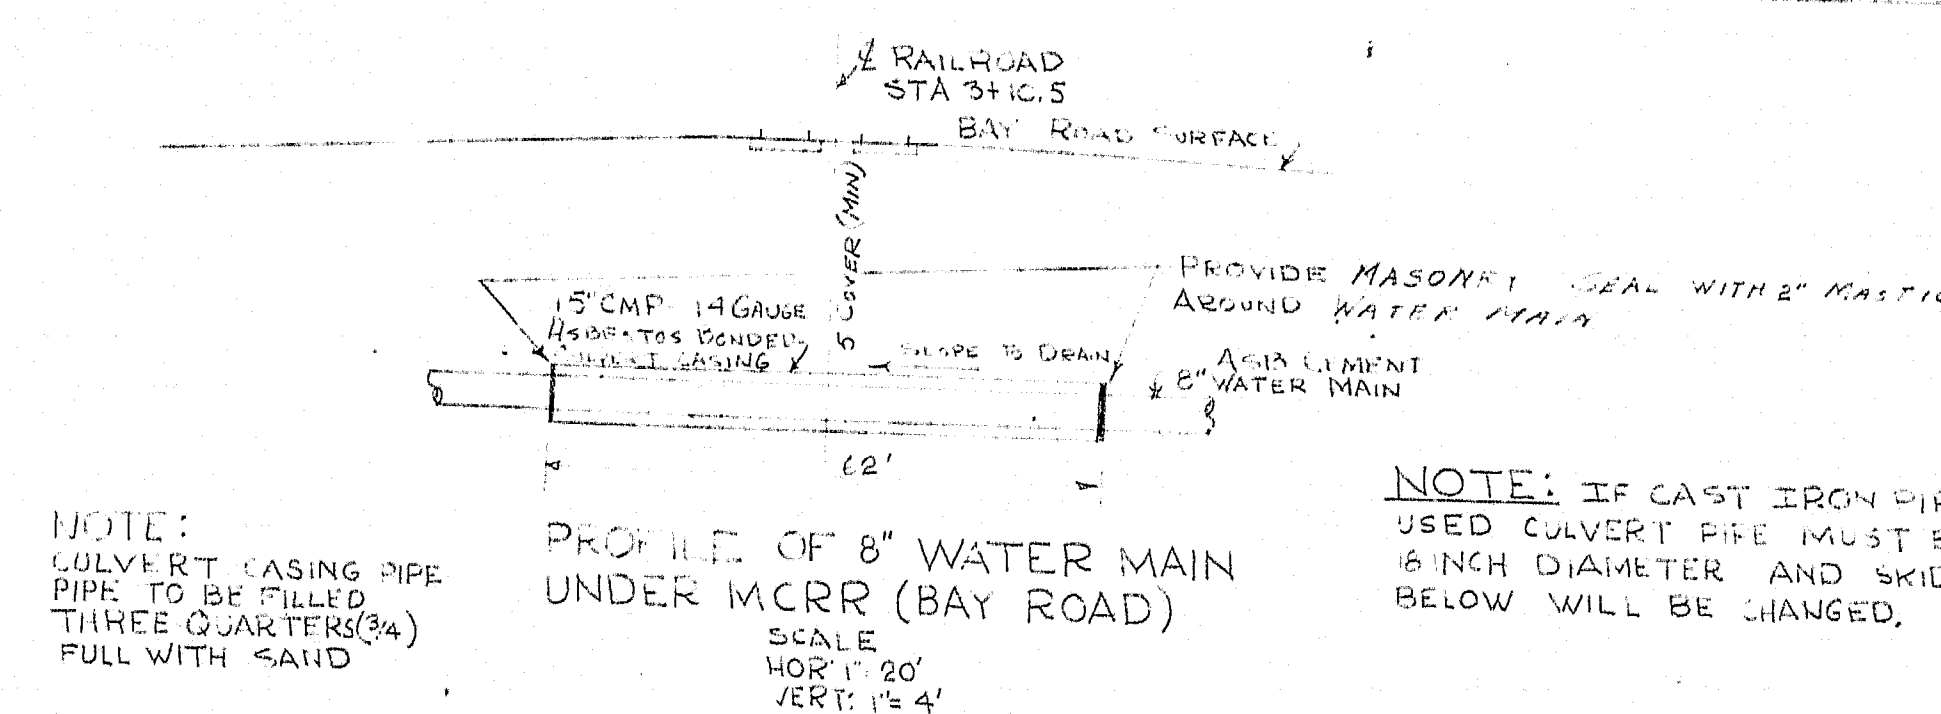 ℄ RAILROAD
STA 3+10.5
BAY ROAD SURFACE
5' COVER (MIN)
PROVIDE MASONRY SEAL WITH 2" MASTIC
AROUND WATER MAIN
15" CMP 14 GAUGE
ASBESTOS BONDED
CULVERT CASING
SLOPE TO DRAIN
ASB CEMENT
8" WATER MAIN
62'
NOTE:
CULVERT CASING PIPE
PIPE TO BE FILLED
THREE QUARTERS (3/4)
FULL WITH SAND
PROFILE OF 8" WATER MAIN
UNDER MCRR (BAY ROAD)
SCALE
HOR 1" = 20'
VERT: 1" = 4'
NOTE: IF CAST IRON PIP
USED CULVERT PIPE MUST B
18 INCH DIAMETER AND SKID
BELOW WILL BE CHANGED.